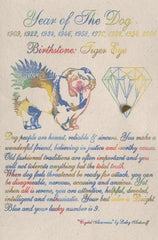 Year of The Dog
1909, 1922, 1934, 1946, 1958, 1970, 1982, 1994, 2006
Birthstone: Tiger Eye
Dog people are honest, reliable & sincere. You make a
wonderful friend, believing in justice and worthy
causes. Old fashioned traditions are often important and you
will not tolerate anything but the total truth.
When dog feels threatened be ready for attack, you can
be disagreeable, nervous, accusing and anxious. Yet
when all is serene, you are attentive, helpful, devoted,
intelligent and enthusiastic. Your best color is Bright
Blue and your lucky number is 9.